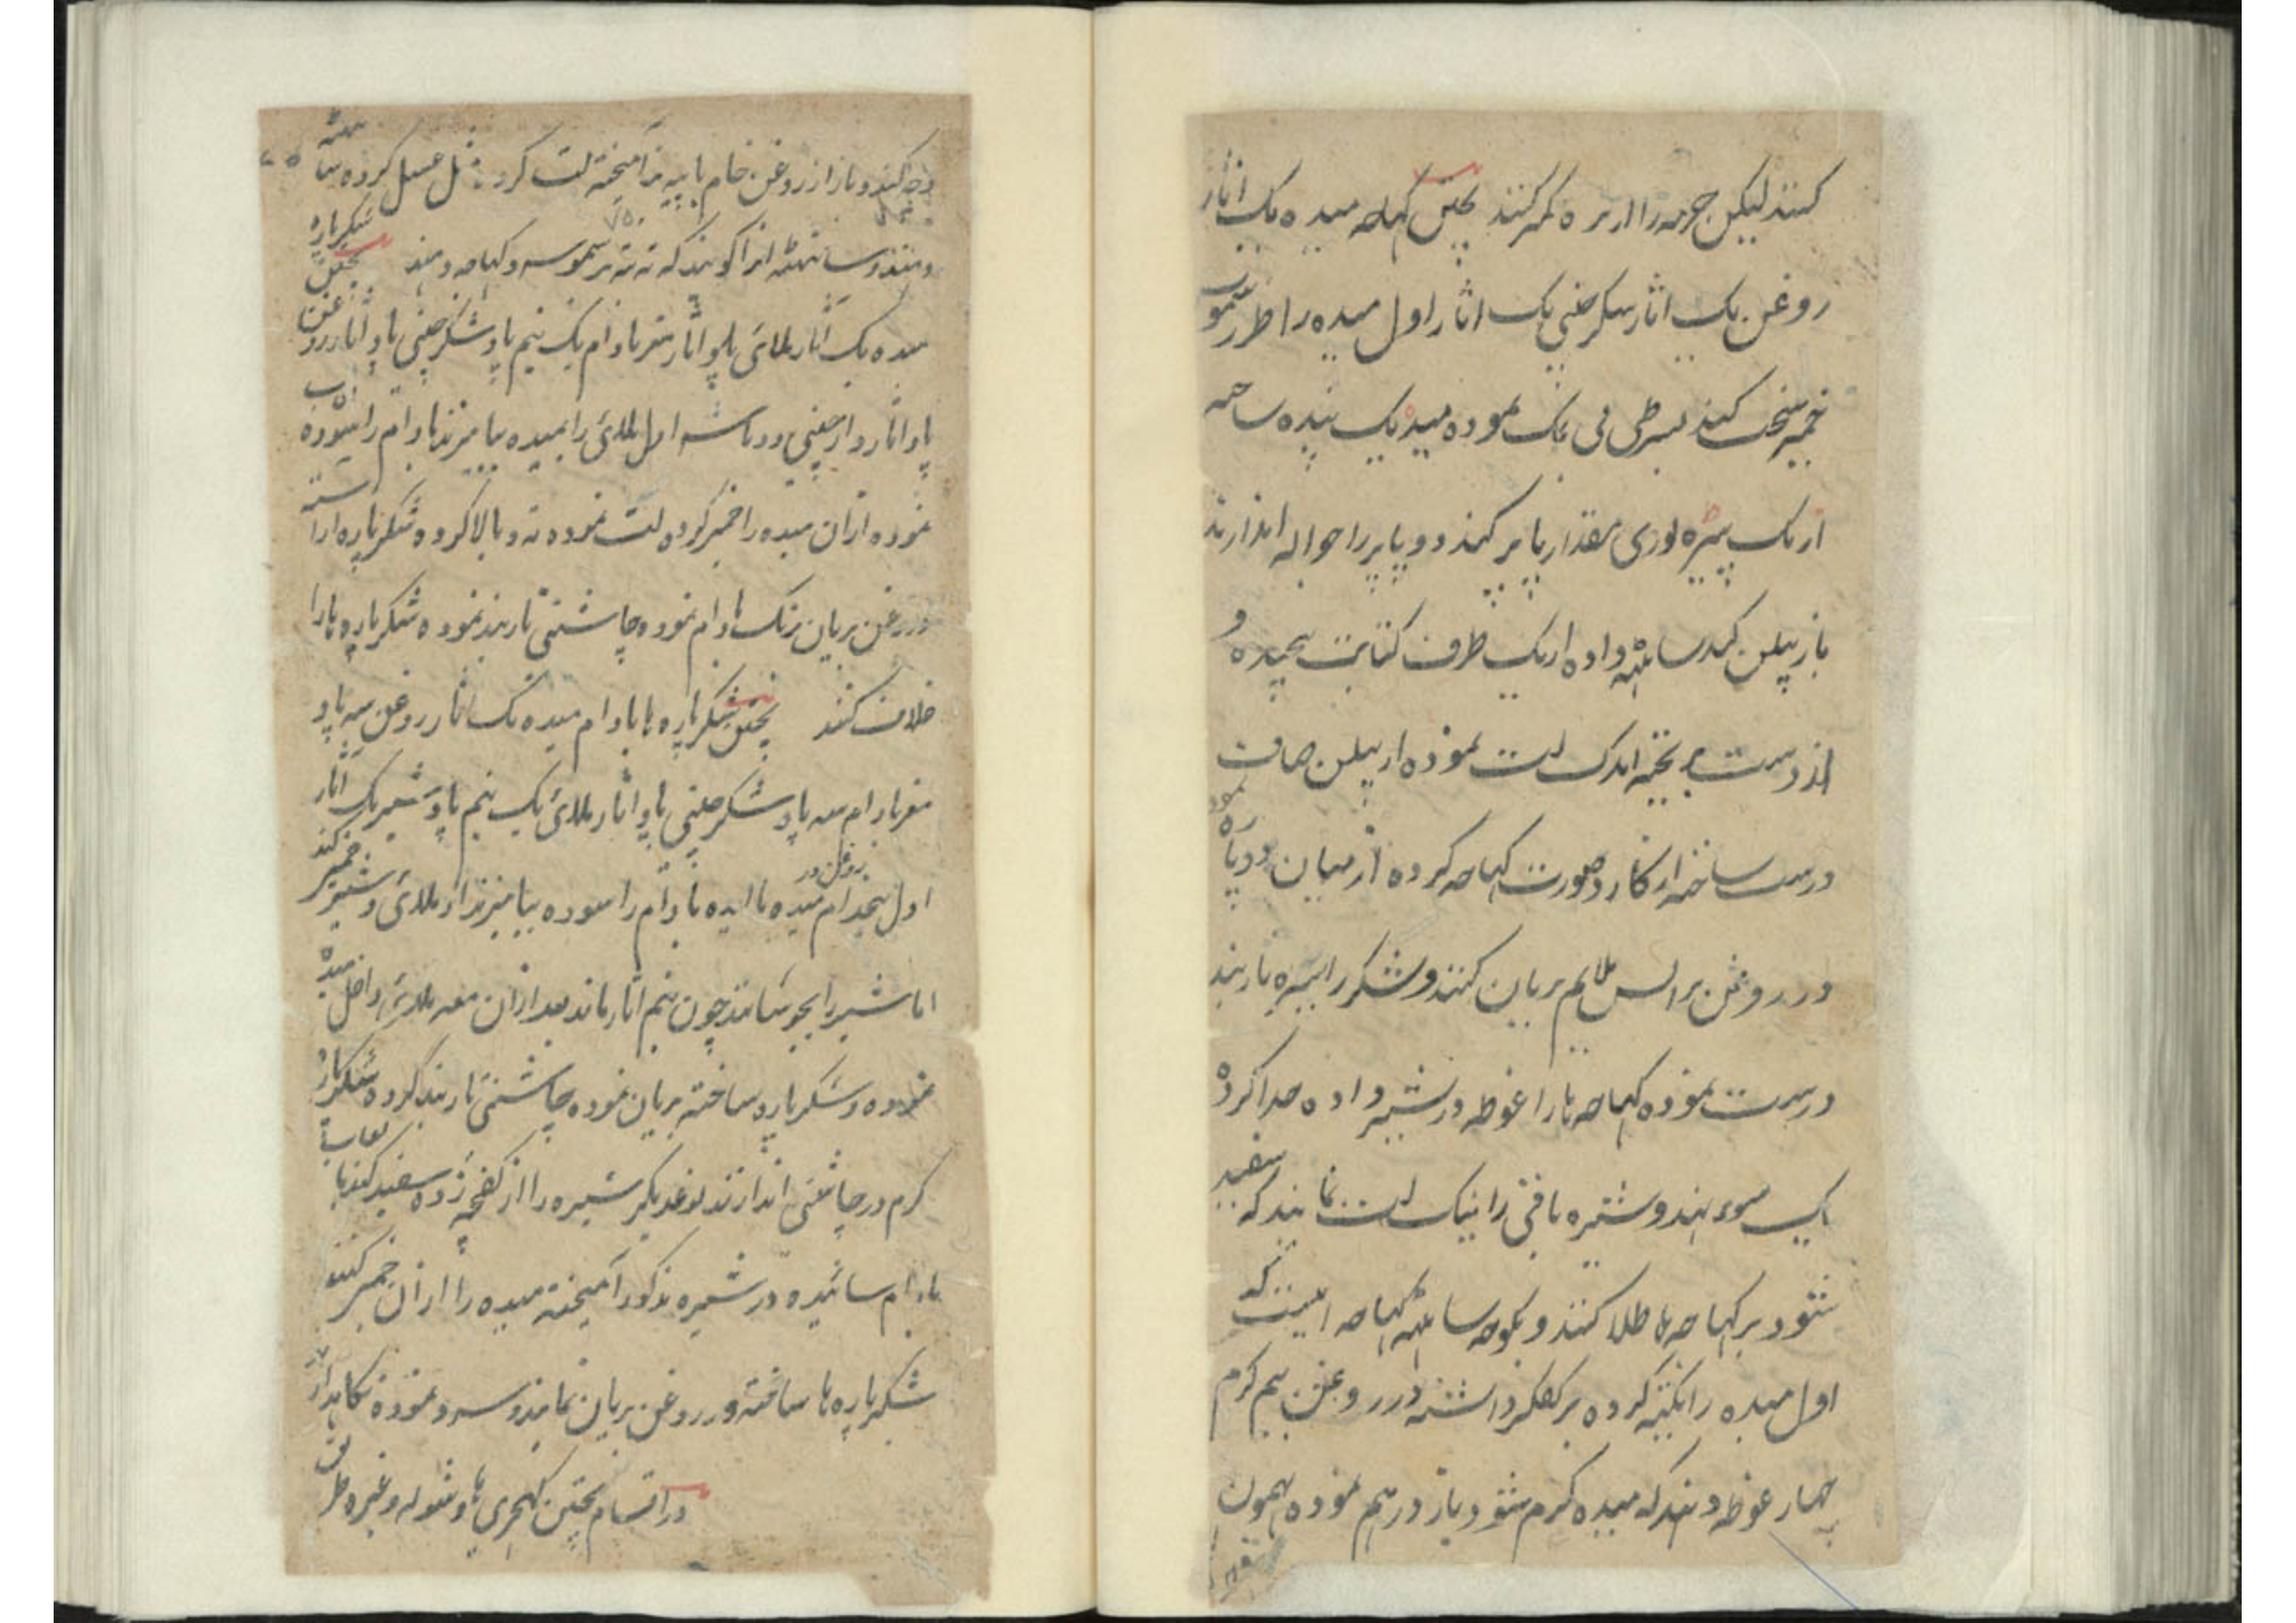 کنند لیکن جرمه را از بره کمر کنند پختن کهاجه میده یک اثار
روغن یک اثار شکر چینی یک اثار اول میده را بطرز سموسه
خمیر سخت کنند بی نمک نموده میده یک پنیده ساخته
از یک پیره لوری مقدار پاپر کنند و دو پاپر را حواله اندازند
باز بیلن کنند ساٹهه داده از یک طرف کتابت پیچیده و
از دست بر تخته اندک لت نموده از بیلن صاف
درست ساخته از کارد صورت کهاجه کرده از میان دو پاره نموده
در روغن بر آتش ملایم بریان کنند و شکر را شیره تاربند
درست نموده کهاجه ها را غوطه در شیره داده جدا کرده
یک سوء نهند و شیره باقی را نیک لت نمایند که سفید
شود بر کهاجه ها طلا کنند و بموجه ساٹهه کهاجه اینست که
اول میده را یکته کرده بر کفگیر داشته در روغن نیم گرم
چهار غوطه دهند که میده گرم شود باز درهم نموده بهمون
وجه کنند و باز از روغن خام یا پیه بز آمیخته لت کرده مثل عسل کرده ساٹهه
دهند و ساٹهه آنرا گویند که ته ته بر سموسه و کهاجه دهند پختن شکرپاره
میده یک اثار بلائی پاو اثار مغز بادام یک نیم پاو شکر چینی پاو اثار روغن
پاو اثار دارچینی دو ماشه اول بلائی را بمیده بیامیزند بادام را سوده آب
نموده ازان میده را خمیر کرده لت نموده ته و بالا کرده شکرپاره آراسته
در روغن بریان برنگ بادام نموده چاشنی تاربند نموده شکرپاره ها را
غلاف کنند پختن شکرپاره با بادام میده یک اثار روغن سه پاو
مغز بادام سه پاو شکر چینی پاو اثار بلائی یک نیم پاو شیر یک اثار
اول میده مالیده بادام را سوده بیامیزند از بلائی و شیر خمیر کنند
روغن در
اما شیر را بجوشانند چون نیم اثار ماند بعد ازان معه بلائی داخل میده
نموده و شکرپاره ساخته بریان نموده چاشنی تاربند کرده شکرپاره
گرم در چاشنی اندازند نوعدیگر شیره را از کفچه زده سفید کنند یا
بادام سائیده در شیره مذکور آمیخته میده را ازان خمیر کنند
شکرپاره ها ساخته در روغن بریان نمایند و سرد نموده نگاهدارند
در اقسام پختن کهچری ها و شوله و غیره